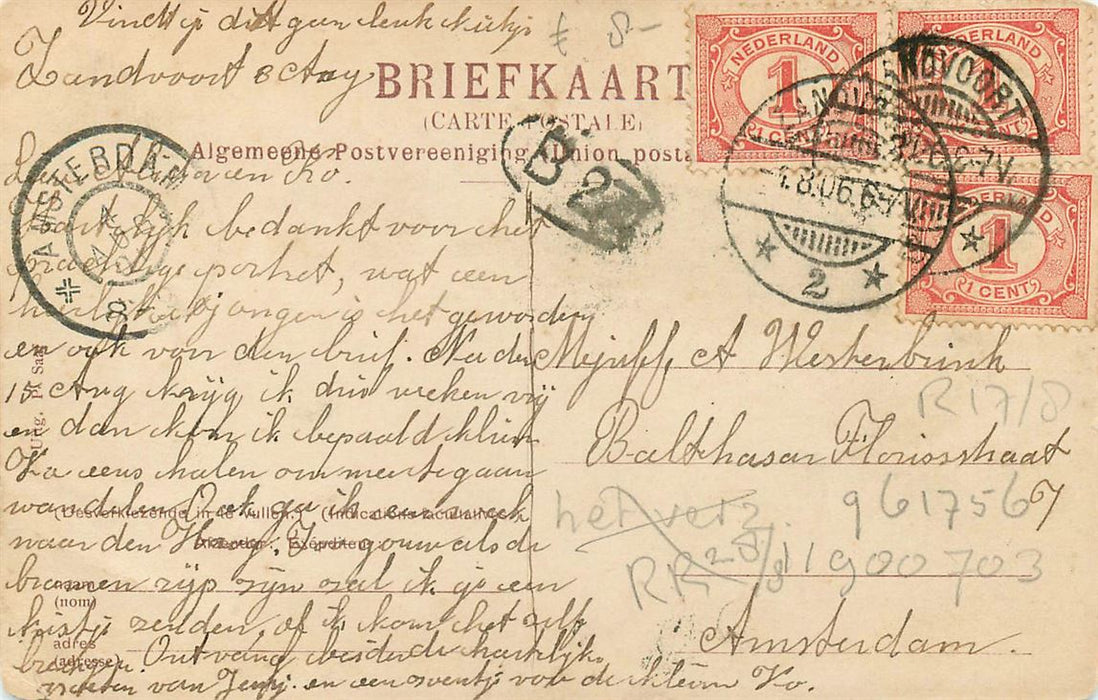 Vindt je dit geen leuk kiekje
£ 8-
Zandvoort 8 Aug
BRIEFKAART
(CARTE POSTALE)
Algemeene Postvereeniging (Union posta
NEDERLAND
1
1 CENT
NEDERLAND
1 CENT
NEDERLAND
1
1 CENT
ZANDVOORT
6-7N.
ZANDVOORT
8.06.6-7N
2
AMSTERDAM
8
B 27
en Ko.
Hartelijk bedankt voor het
prachtige portret, wat een
jongen is het geworden
en ook van den brief. Na den
15 Aug krijg ik drie weken vrij
en dan kom ik bepaald klein
Ko eens halen om mee te gaan
wandelen. Ook ga ik een week
naar den Haag. Jou als de
bramen rijp zijn zal ik je een
kistje zenden, of ik kom het zelf
brengen. Ontvang beiden de hartelijke
groeten van Jenij. en een zoentje voor de kleine Ko.
Uitg.
Mejuff, A Westerbrink
Balthasar Florisstraat
7
Amsterdam.
R17/8
het vetz
961756
RR
11900703
(Desverkiezende in te vullen.) (Indications facultatives.)
Afzender. Expéditeur.
naam
(nom)
adres
(adresse)